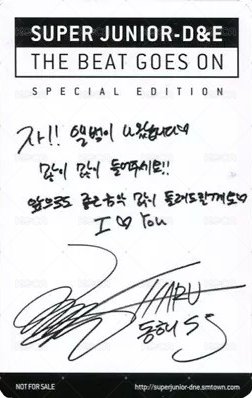 SUPER JUNIOR-D&E
THE BEAT GOES ON
SPECIAL EDITION
자!! 앨범이 나왔습니다♡
많이 많이 들어주세요!!
앞으로도 좋은음악 많이 들려드릴게요♡
I ♡ You
HARU
동해
NOT FOR SALE
http://superjunior-dne.smtown.com